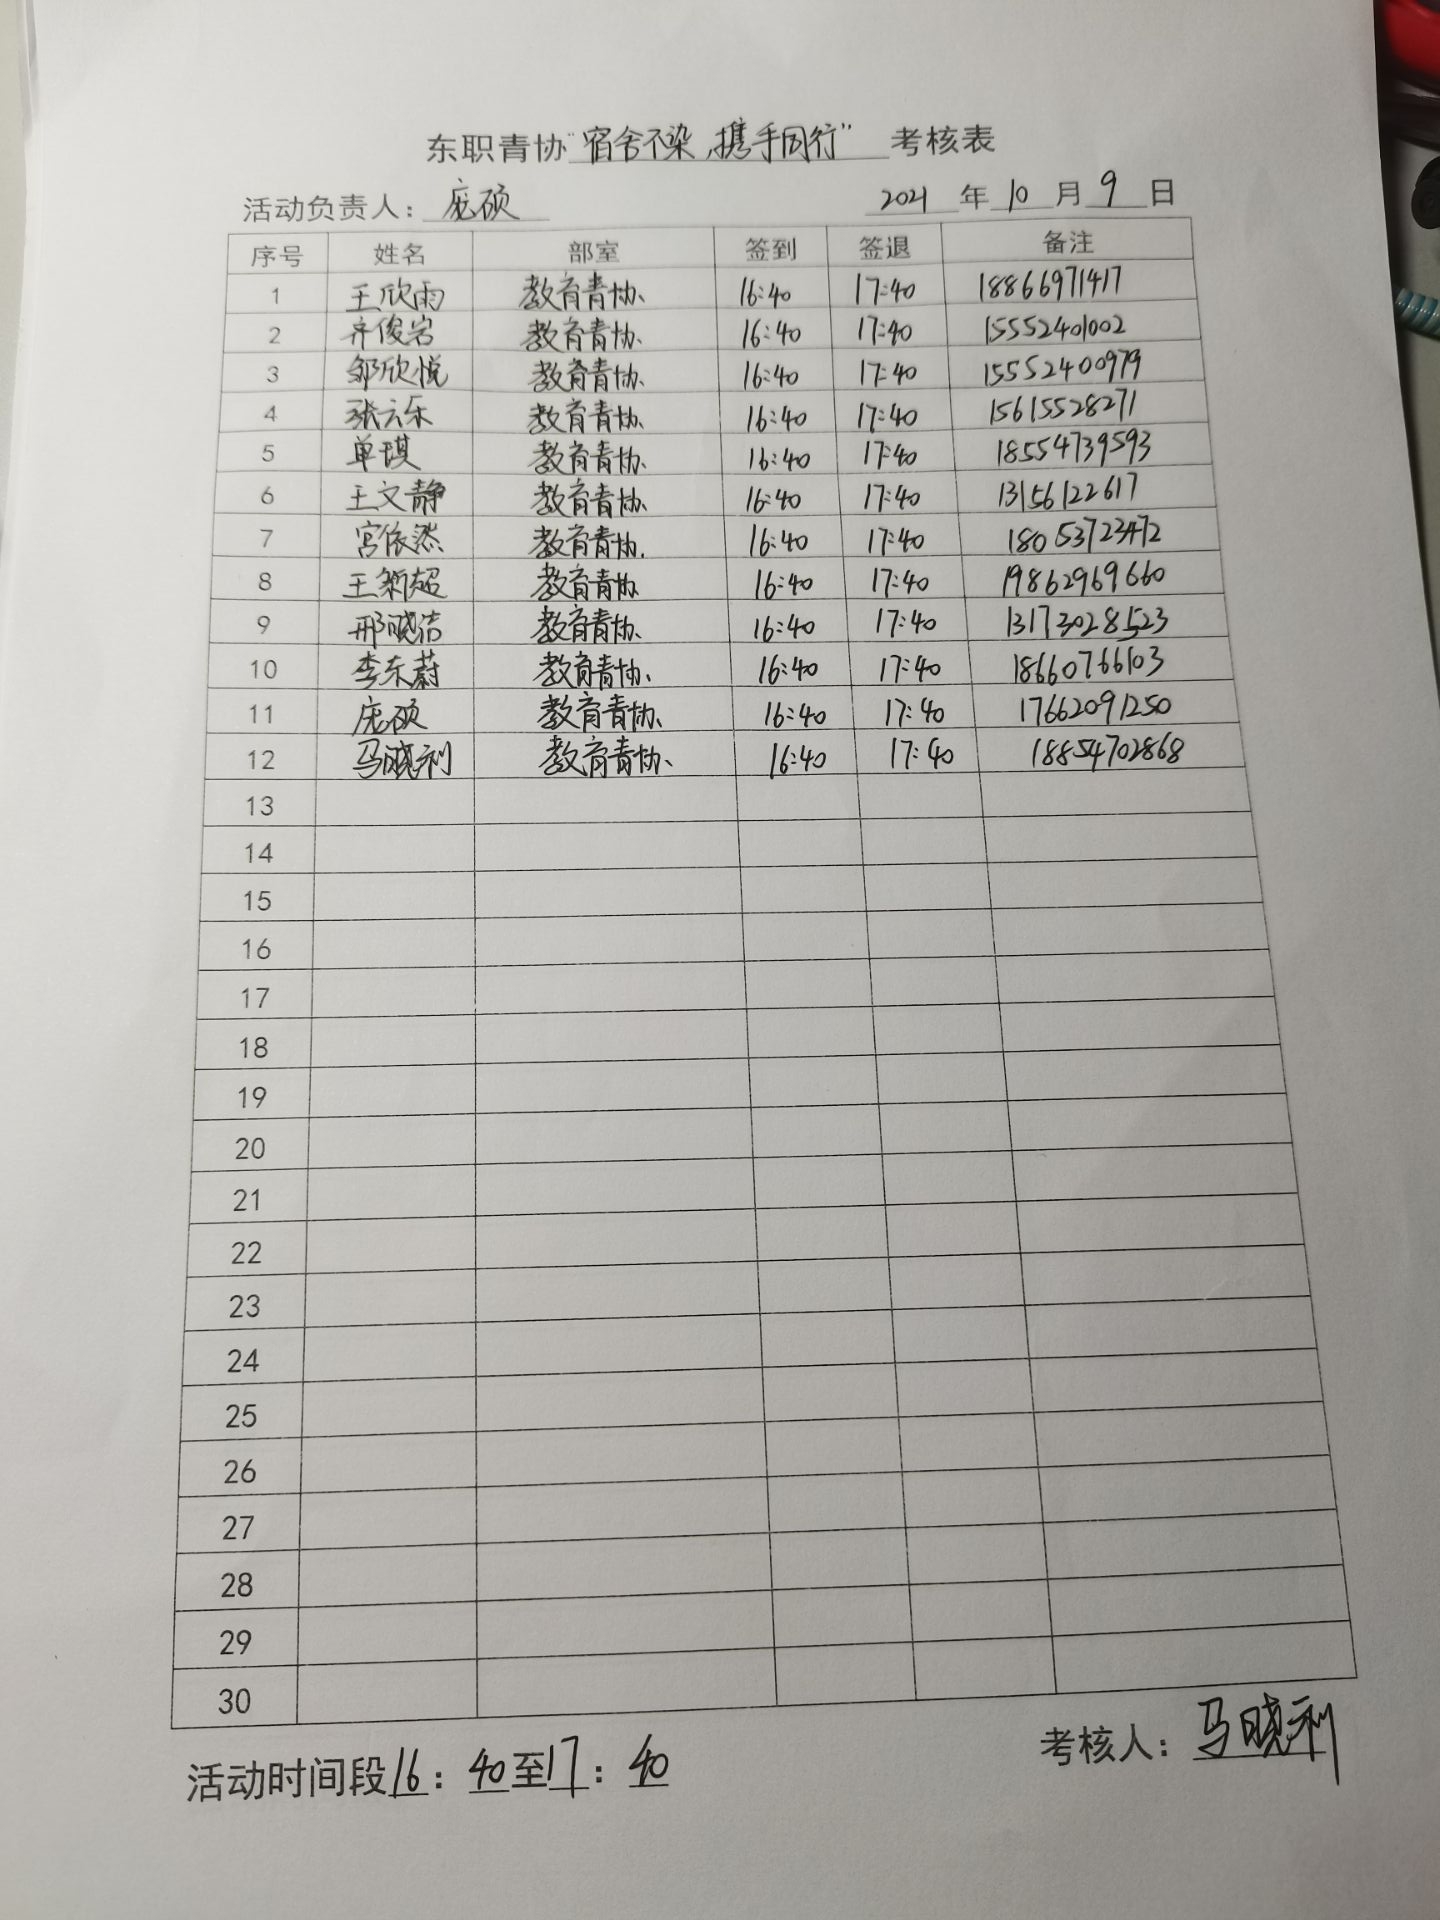 东职青协“宿舍不染,携手同行” 考核表
活动负责人：庞硕 2021 年 10 月 9 日
序号 姓名 部室 签到 签退 备注
1 王欣雨 教育青协 16:40 17:40 18866971417
2 齐俊岩 教育青协 16:40 17:40 15552401002
3 邹欣悦 教育青协 16:40 17:40 15552400979
4 张云乐 教育青协 16:40 17:40 15615528271
5 单琪 教育青协 16:40 17:40 18554739593
6 王文静 教育青协 16:40 17:40 13156122617
7 宫依然 教育青协 16:40 17:40 18053723472
8 王新超 教育青协 16:40 17:40 19862969660
9 邢晓洁 教育青协 16:40 17:40 13173028523
10 李东蔚 教育青协 16:40 17:40 18660766103
11 庞硕 教育青协 16:40 17:40 17662091250
12 马晓利 教育青协 16:40 17:40 18854702868
13
14
15
16
17
18
19
20
21
22
23
24
25
26
27
28
29
30
活动时间段16：40至17：40 考核人：马晓利